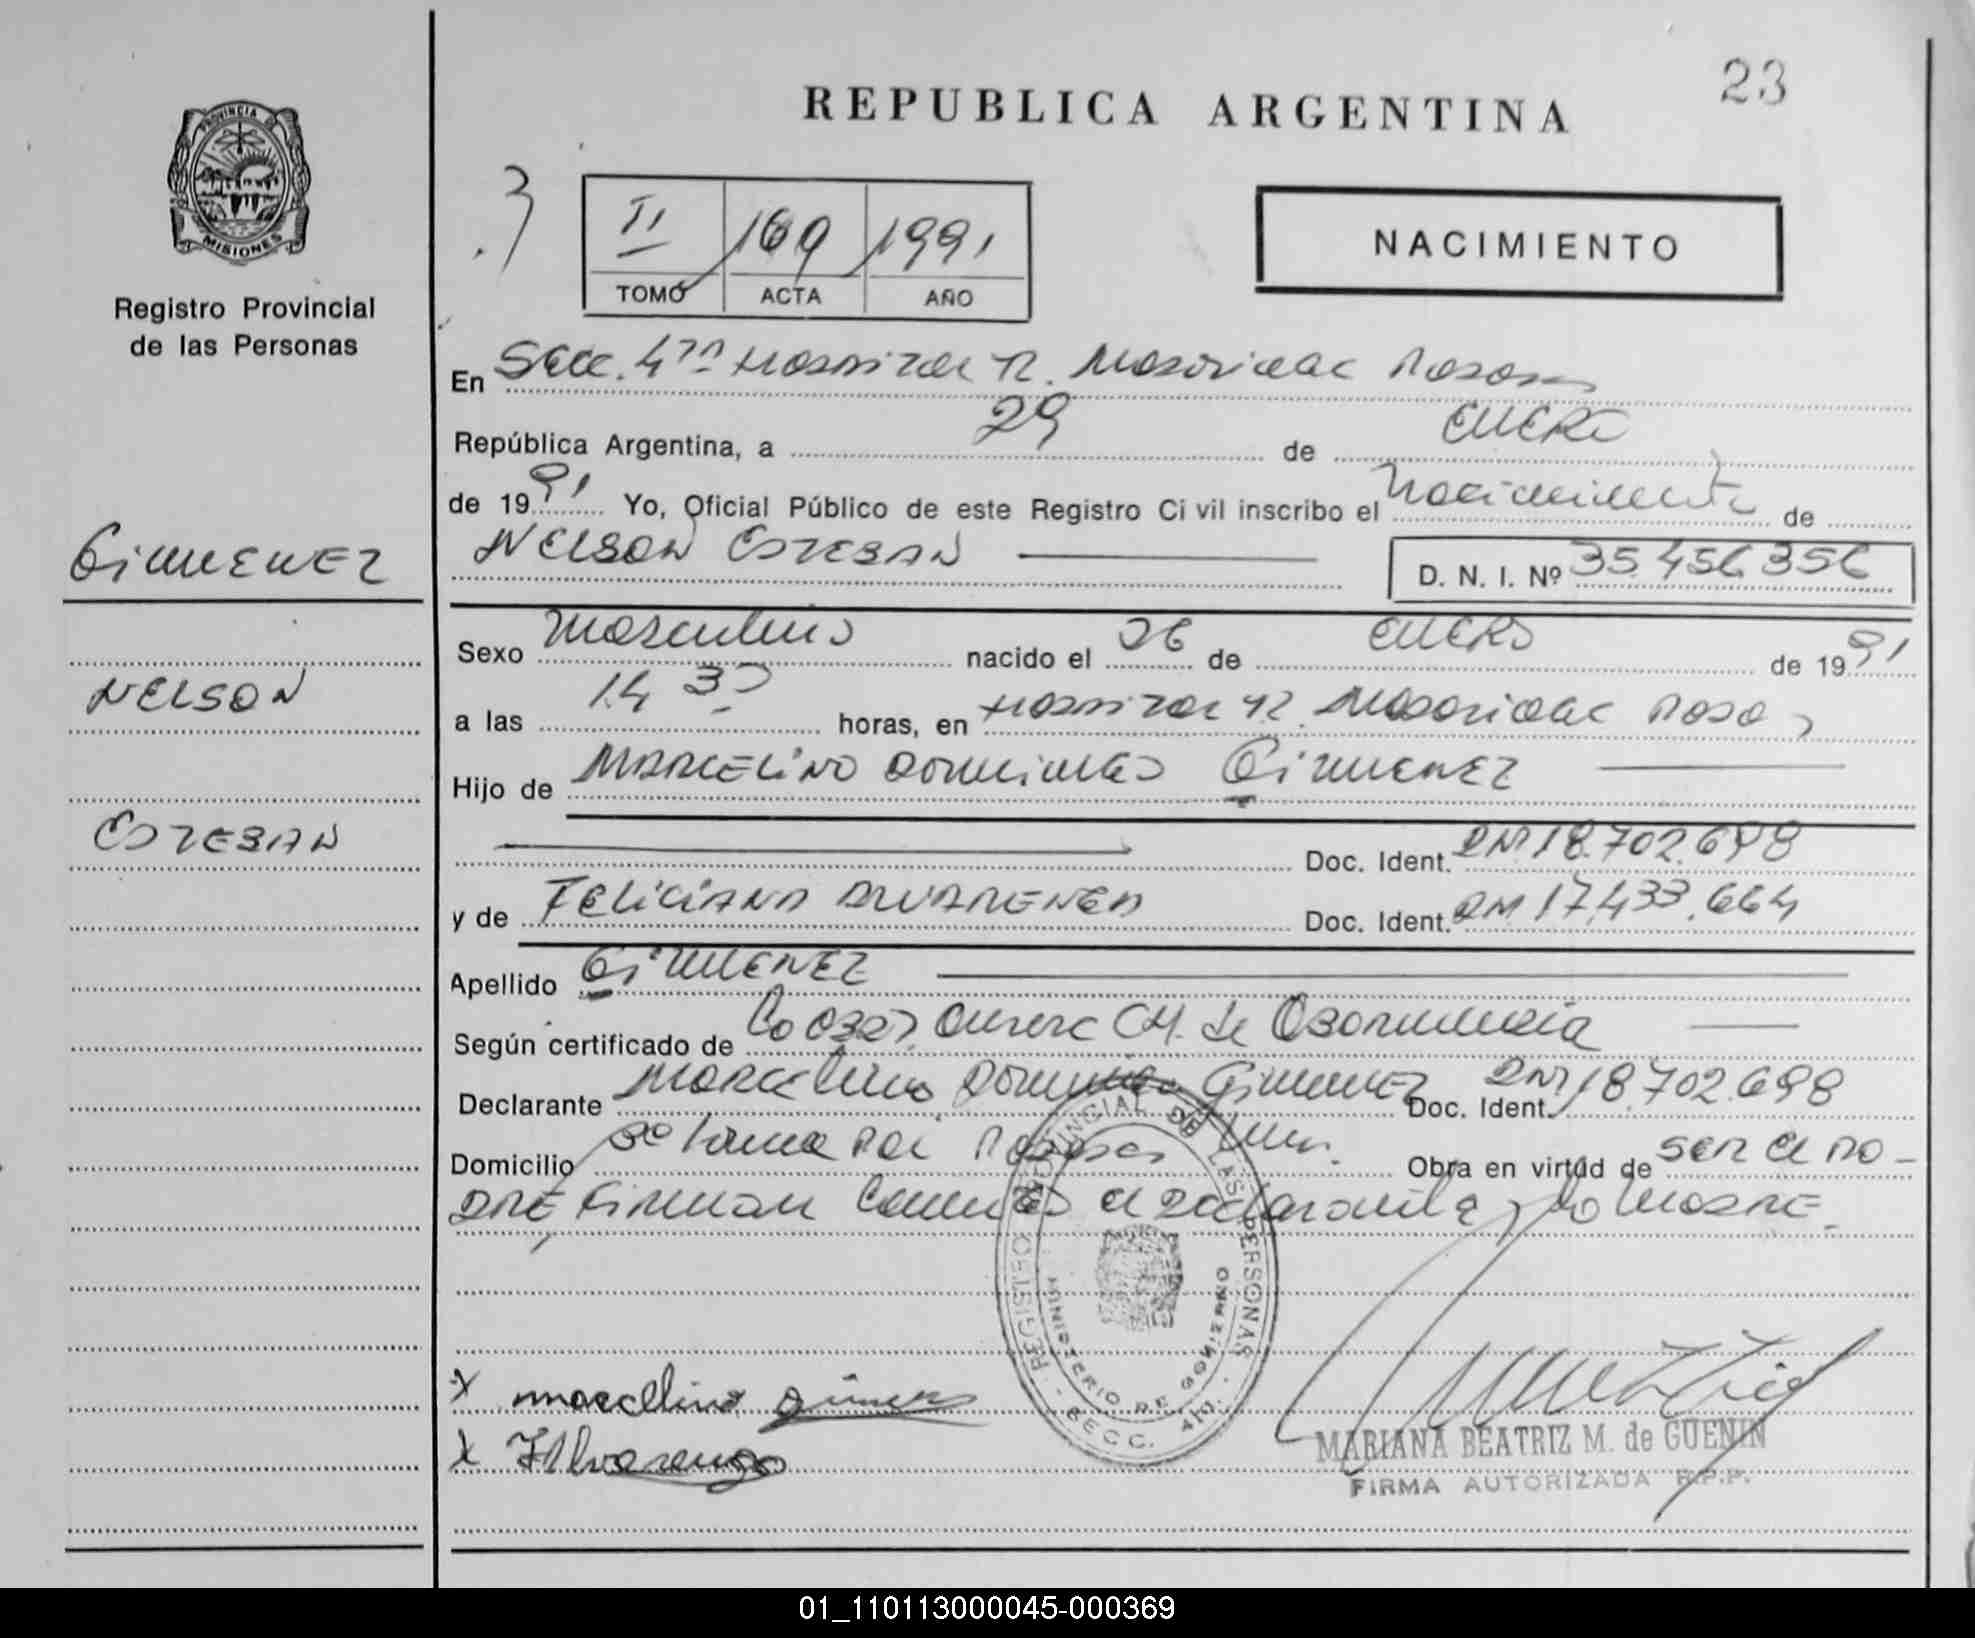 23
REPUBLICA ARGENTINA
PROVINCIA DE
MISIONES
Registro Provincial
de las Personas
3
II 169 1991
TOMO ACTA AÑO
NACIMIENTO
En Secc. 4ta Hospital R. Madariaga Posadas
República Argentina, a 29 de ENERO
de 1991 Yo, Oficial Público de este Registro Civil inscribo el Nacimiento de
NELSON ESTEBAN D. N. I. Nº 35.456.356
GIMENEZ
NELSON
ESTEBAN
Sexo Masculino nacido el 26 de ENERO de 1991
a las 14 30 horas, en Hospital R. Madariaga Posadas
Hijo de MARCELINO DOMINGO GIMENEZ
Doc. Ident. DNI 18.702.698
y de FELICIANA ALVARENGA Doc. Ident. DNI 17.433.664
Apellido GIMENEZ
Según certificado de de Obstetricia
Declarante Marcelino Domingo Gimenez Doc. Ident. DNI 18.702.698
Domicilio Posadas Obra en virtud de ser el PA-
DRE, Firman el declarante y la MADRE.
REGISTRO PROVINCIAL DE LAS PERSONAS
MINISTERIO DE GOBIERNO
SECC. 4ta.
X marcelino gimenez
X F Alvarenga
MARIANA BEATRIZ M. de GUENIN
FIRMA AUTORIZADA R.P.P.
01_110113000045-000369